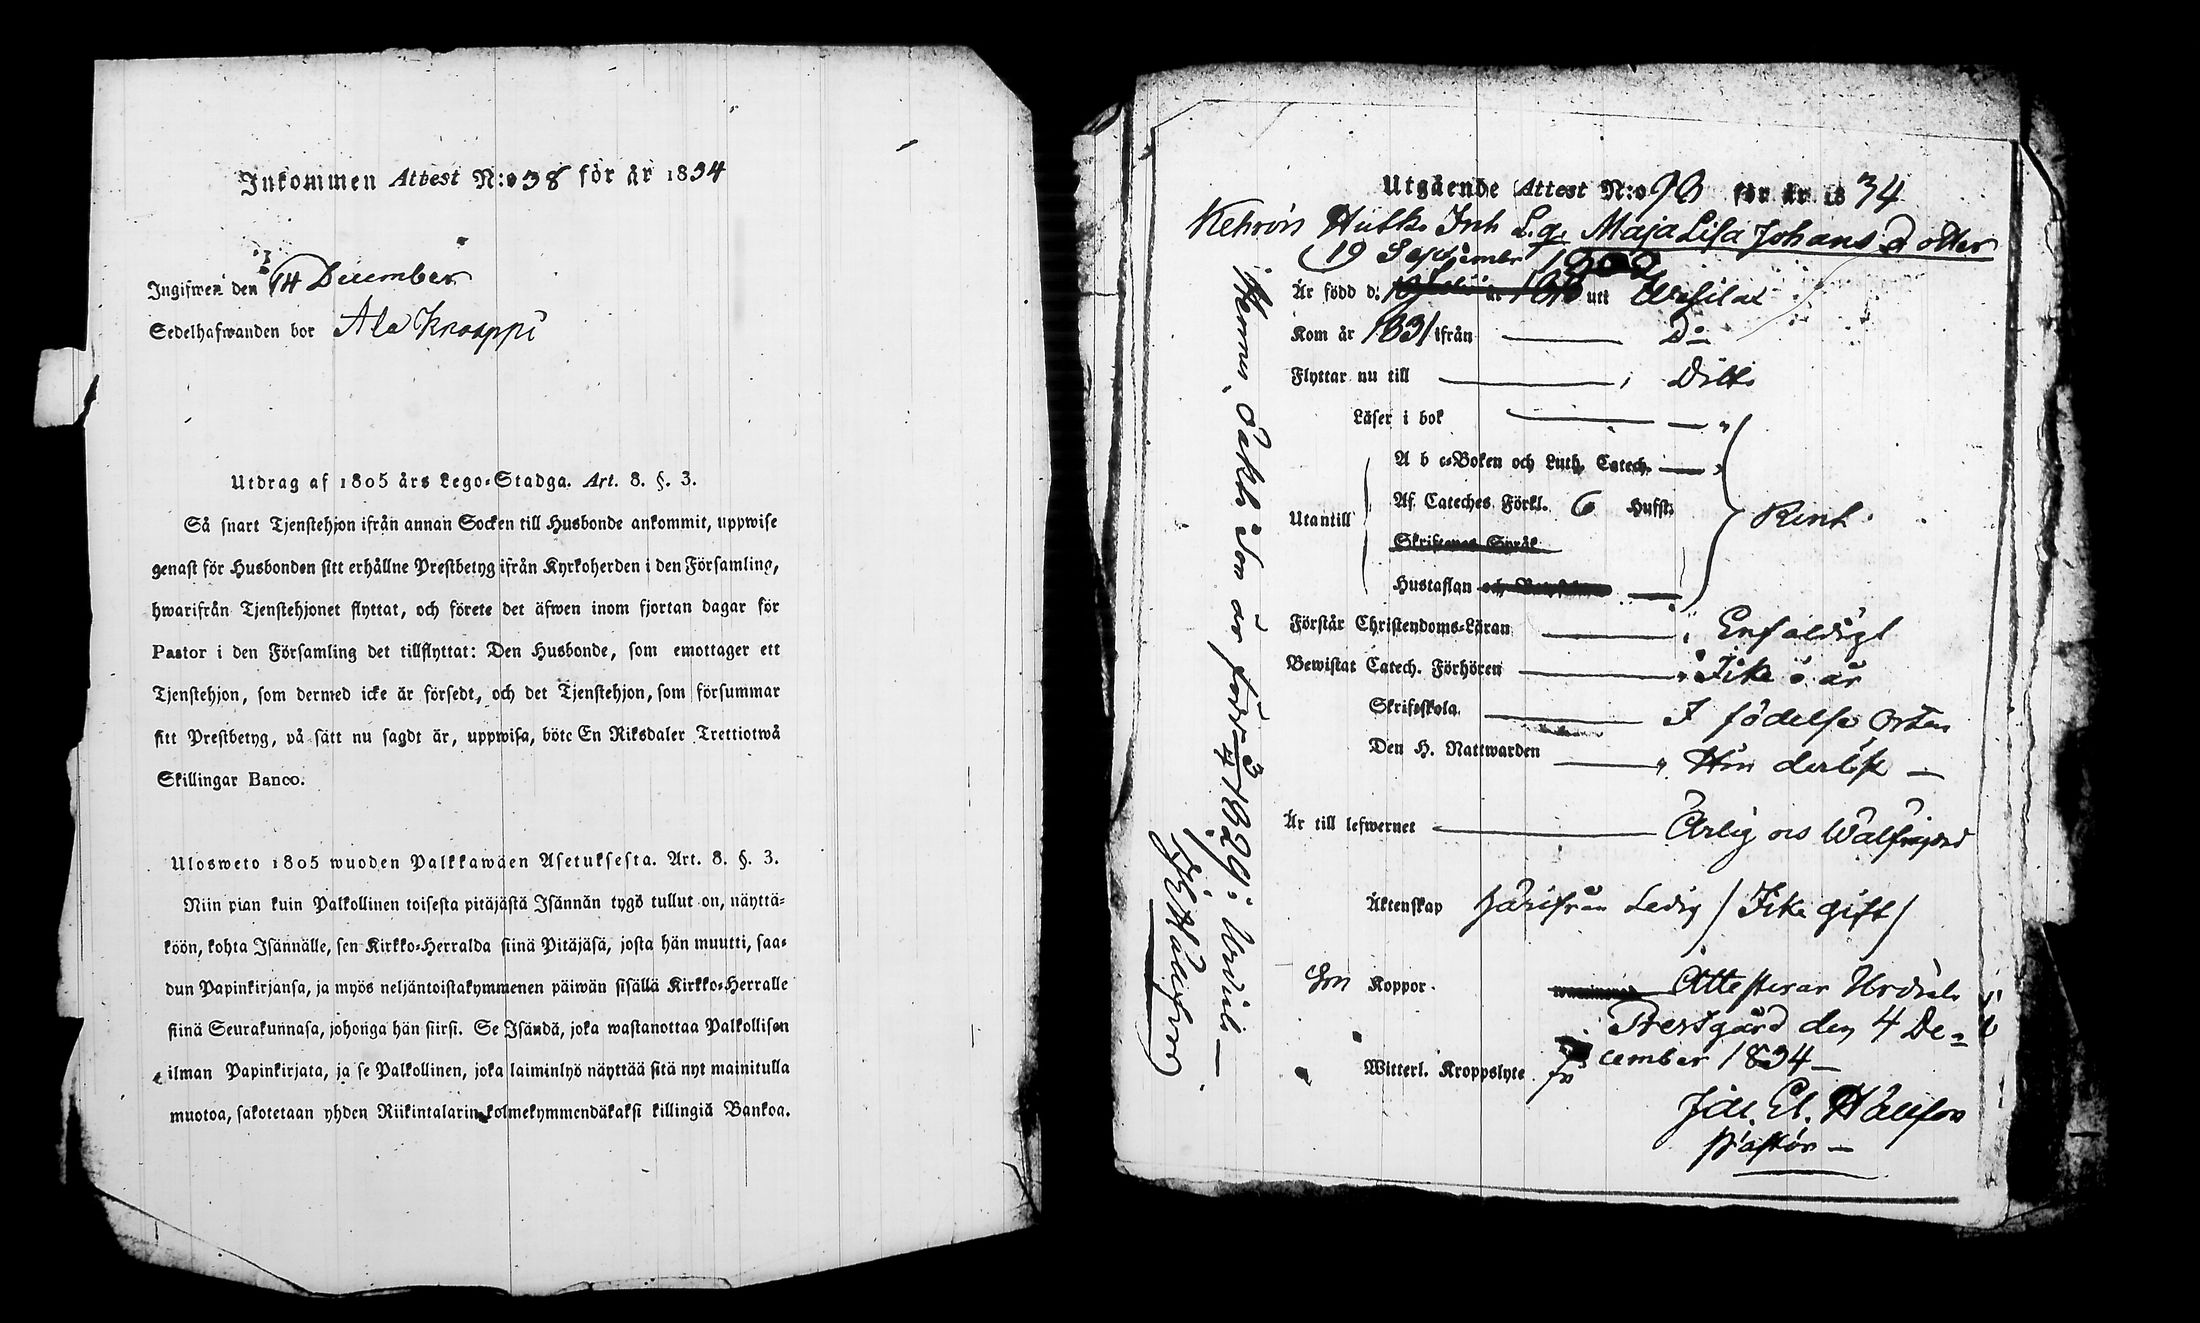 Inkommen Attest N:o 38 för år 1834
Ingifwen den 14 December
Sedelhafwanden bor Ala Knaappi
Utdrag af 1805 års Lego-Stadga. Art. 8. §. 3.
Så snart Tjenstehjon ifrån annan Socken till Husbonde ankommit, uppwise
genast för Husbonden sitt erhållne Prestbetyg ifrån Kyrkoherden i den Församling,
hwarifrån Tjenstehjonet flyttat, och förete det äfwen inom fjortan dagar för
Pastor i den Församling det tillflyttat: Den Husbonde, som emottager ett
Tjenstehjon, som dermed icke är försedt, och det Tjenstehjon, som försummar
sitt Prestbetyg, på sätt nu sagdt är, uppwisa, böte En Riksdaler Trettiotwå
Skillingar Banco.
Ulosweto 1805 wuoden Palkkawäen Asetuksesta. Art. 8. §. 3.
Niin pian kuin Palkollinen toisesta pitäjästä Isännän tygö tullut on, näyttä-
köön, kohta Isännälle, sen Kirkko-Herralda siinä Pitäjäsä, josta hän muutti, saa-
dun Papinkirjansa, ja myös neljäntoistakymmenen päiwän sisällä Kirkko-Herralle
siinä Seurakunnasa, johonga hän siirsi. Se Isändä, joka wastanottaa Palkollisen
ilman Papinkirjata, ja se Palkollinen, joka laiminlyö näyttää sitä nyt mainitulla
muotoa, sakotetaan yhden Riikintalarin kolmekymmendäkaksi killingiä Bankoa.
Utgående Attest N:o 93 för år 1834
Inh Maja Lisa Johans dotter
19 September
Är född d. uti
Kom år 1831 ifrån Do
Flyttar nu till Ditto
Läser i bok
A b c-Boken och Luth. Catech.
Utantill Af Cateches Förkl. 6 Hufst.
Rent
Skriftenes Språk
Hustaflan
Förstår Christendoms-Läran Enfaldigt
Bewistat Catech. Förhören Icke i år
Skriftskola I födelse Orten
Den H. Nattwarden
Är till lefwernet Ärlig
Äktenskap härifrån Ledig / Icke gift /
Koppor. Attesterar Urdiala
Prestgård den 4 De-
cember 1834
Witterl. Kroppslyte
Pastor
är född 1829: Urdiala